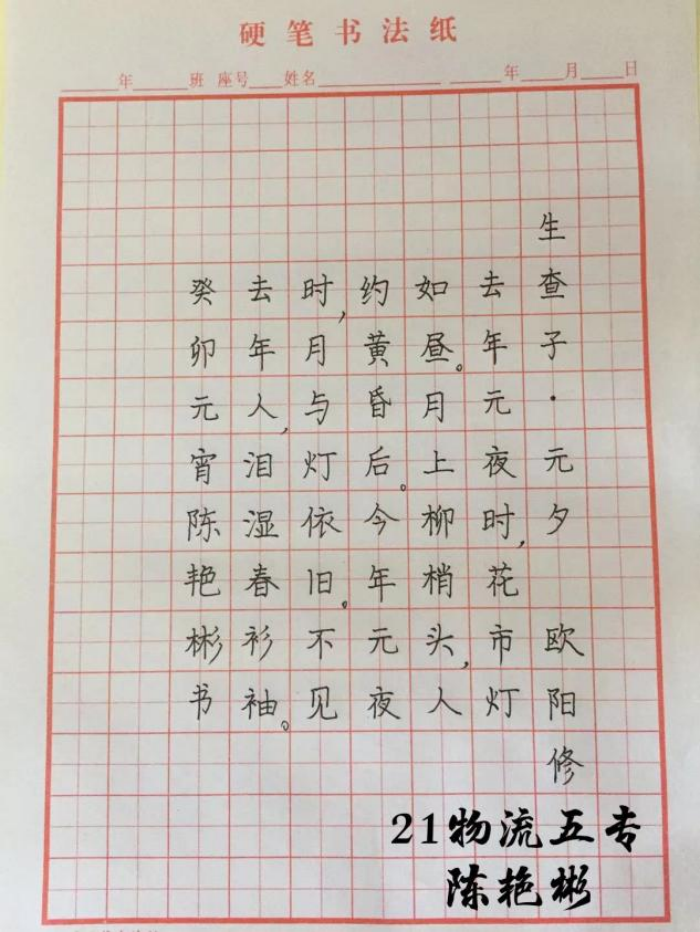 硬笔书法纸
年 班 座号 姓名 年 月 日
生查子·元夕 欧阳修
去年元夜时,花市灯
如昼。月上柳梢头,人
约黄昏后。今年元夜
时,月与灯依旧。不见
去年人,泪湿春衫袖。
癸卯元宵陈艳彬书
21物流五专
陈艳彬